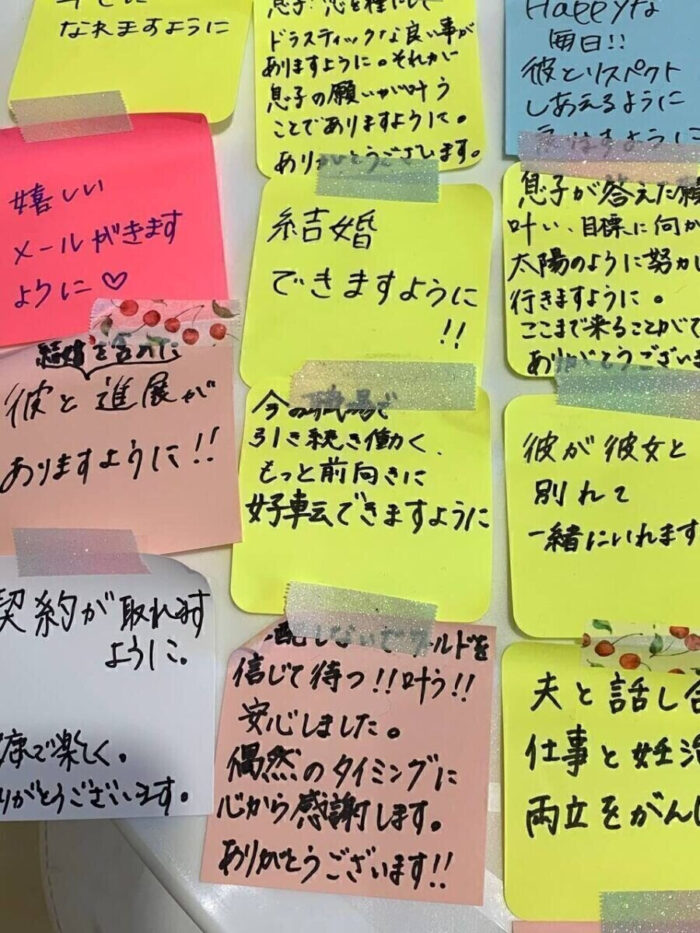 なれますように
ドラスティックな良い事が
ありますように。それが
息子の願いが叶う
ことでありますように。
ありがとうございます。
Happyな
毎日!!
彼とリスペクト
しあえるように
嬉しい
メールがきます
ように♡
結婚
できますように
!!
息子が答えた願
叶い、目標に何か
太陽のように努力し
行きますように。
ここまで来ることができて
ありがとうございま
結婚を含めた
彼と進展が
ありますように!!
今の職場で
引き続き働く、
もっと前向きに
好転できますように
彼が彼女と
別れて
一緒にいれます
契約が取れます
ように。
康で楽しく。
りがとうございます。
配しないで
信じて待つ!!叶う!!
安心しました。
偶然のタイミングに
心から感謝します。
ありがとうございます!!
夫と話し合
仕事と妊活
両立をがんば